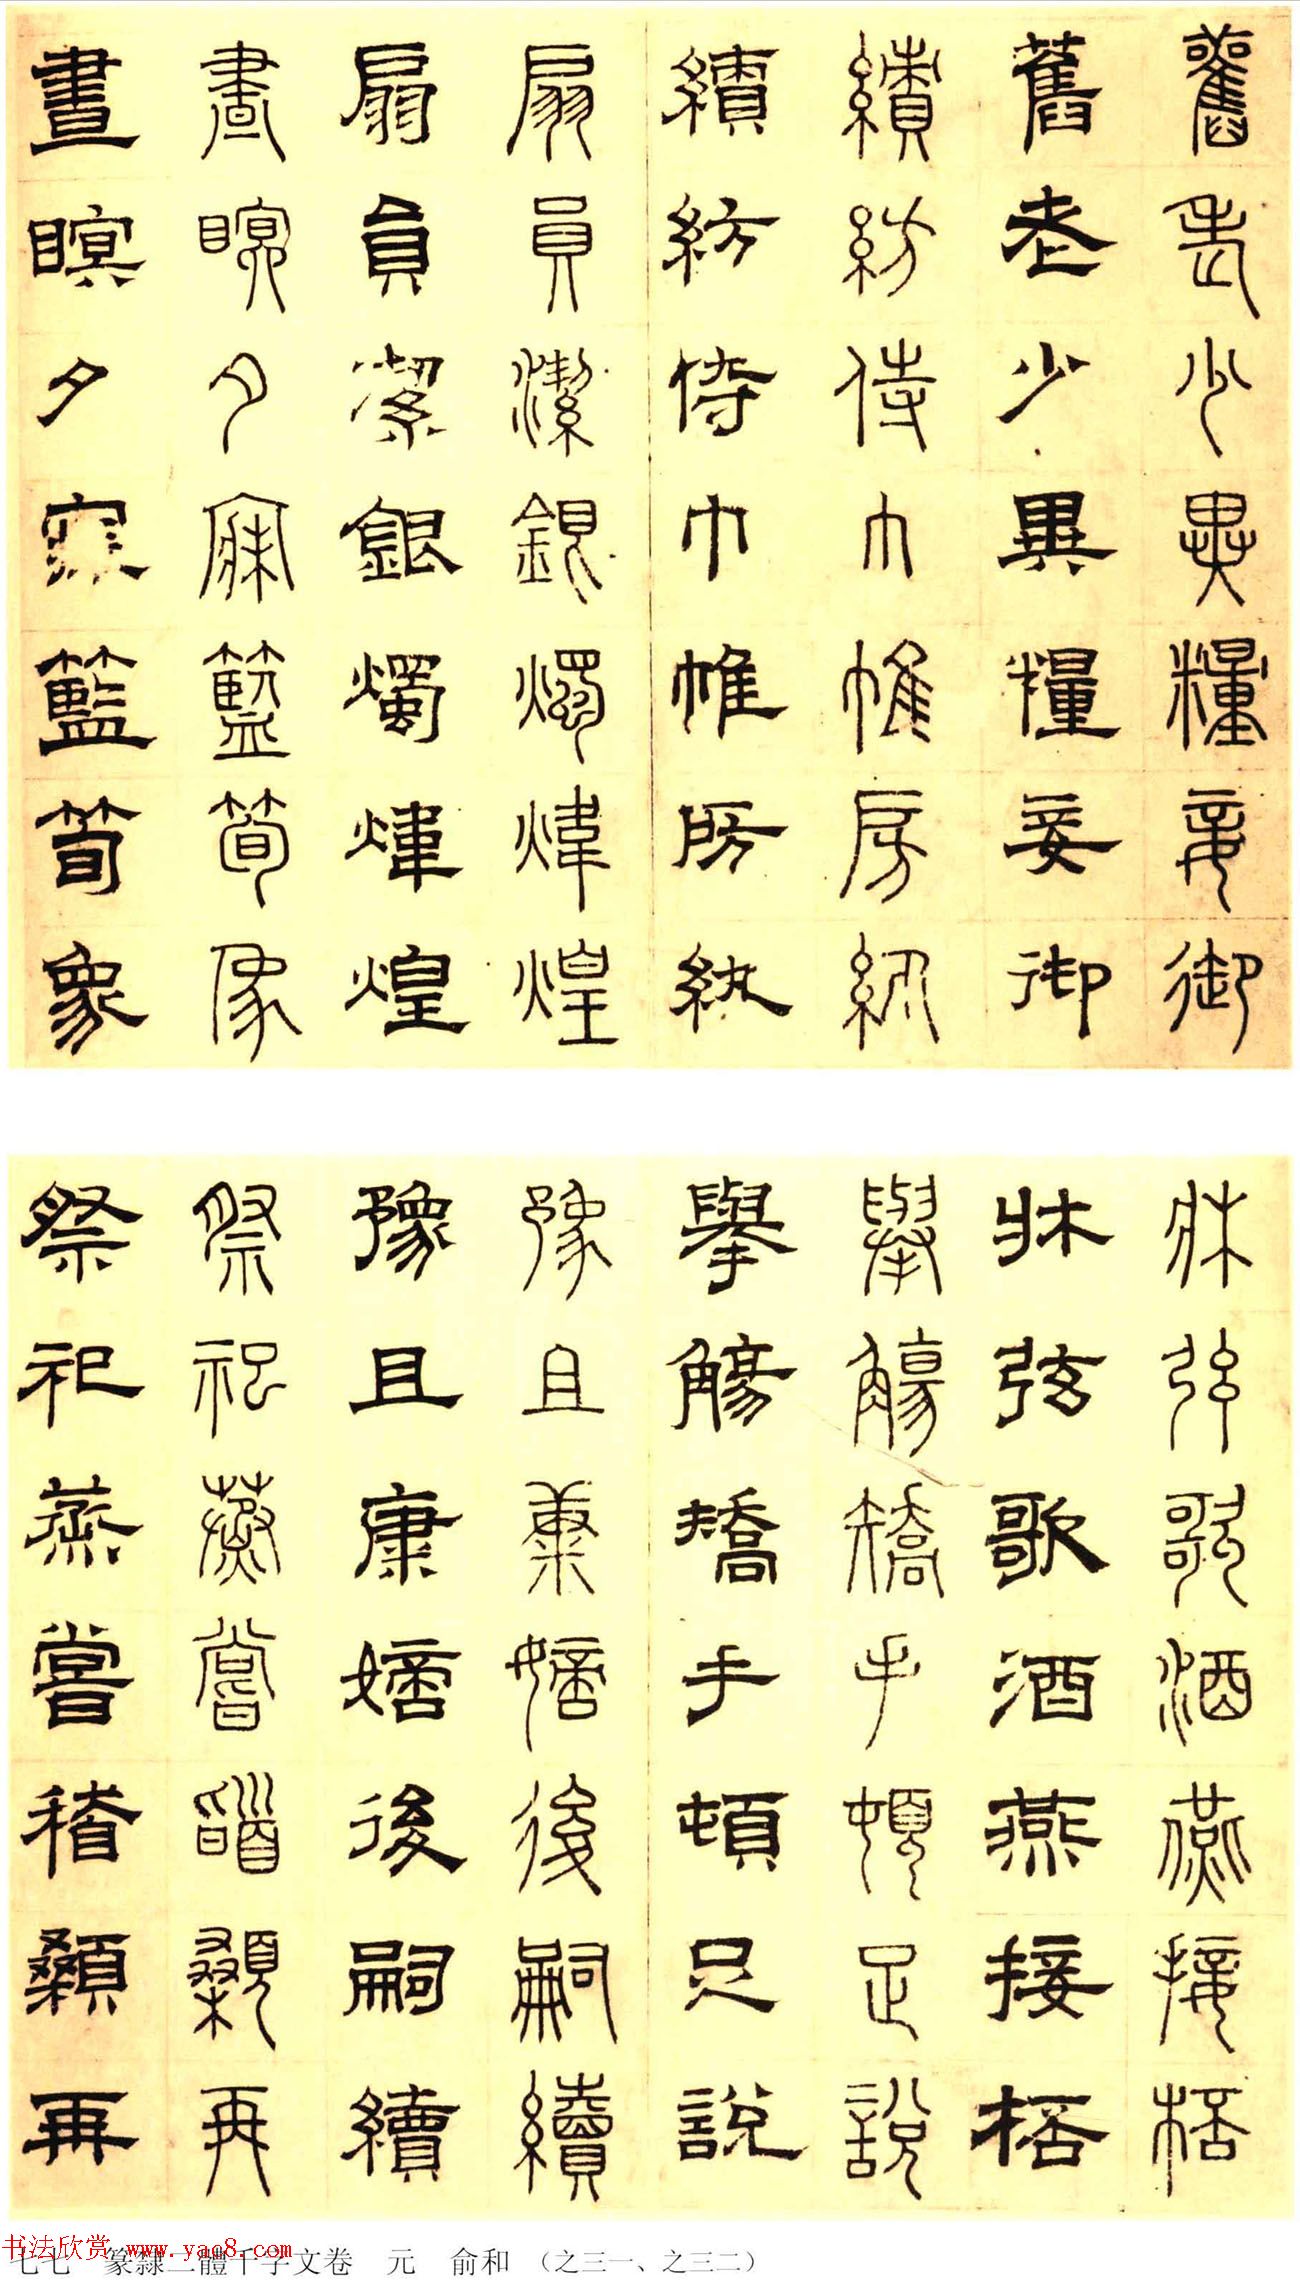 舊老少異糧妾御
舊老少異糧妾御
績紡侍巾帷房紈
績紡侍巾帷房紈
扇員潔銀燭煒煌
扇員潔銀燭煒煌
晝瞑夕寐籃筍象
晝瞑夕寐籃筍象
牀弦歌酒燕接桮
牀弦歌酒燕接桮
舉觴矯手頓足說
舉觴矯手頓足說
豫且康嫡後嗣續
豫且康嫡後嗣續
祭祀蒸嘗䭫顙再
祭祀蒸嘗稽顙再
七七 篆隸二體千字文卷 元 俞和 （之三一、之三二）
书法欣赏 www.yac8.com